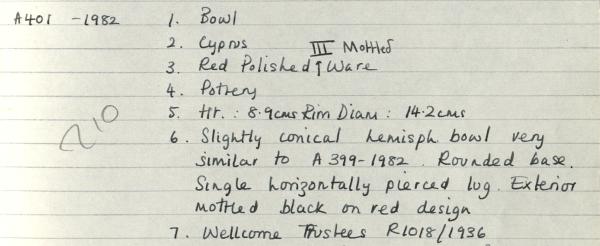 A401 - 1982 1. Bowl
2. Cyprus III Mottled
3. Red Polished ↑ Ware
4. Pottery
5. Ht. : 8.9cms Rim Diam : 14.2cms
210
6. Slightly conical hemisph. bowl very
similar to A 399-1982. Rounded base.
Single horizontally pierced lug. Exterior
mottled black on red design
7. Wellcome Trustees R1018/1936